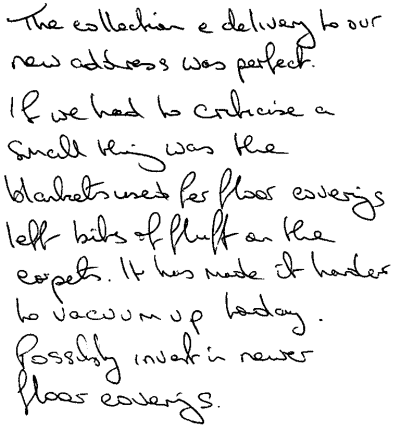 The collection & delivery to our
new address was perfect.
If we had to criticise a
small thing was the
blankets used for floor coverings
left bits of fluff on the
carpets. It has made it harder
to vacuum up today.
Possibly invest in newer
floor coverings.